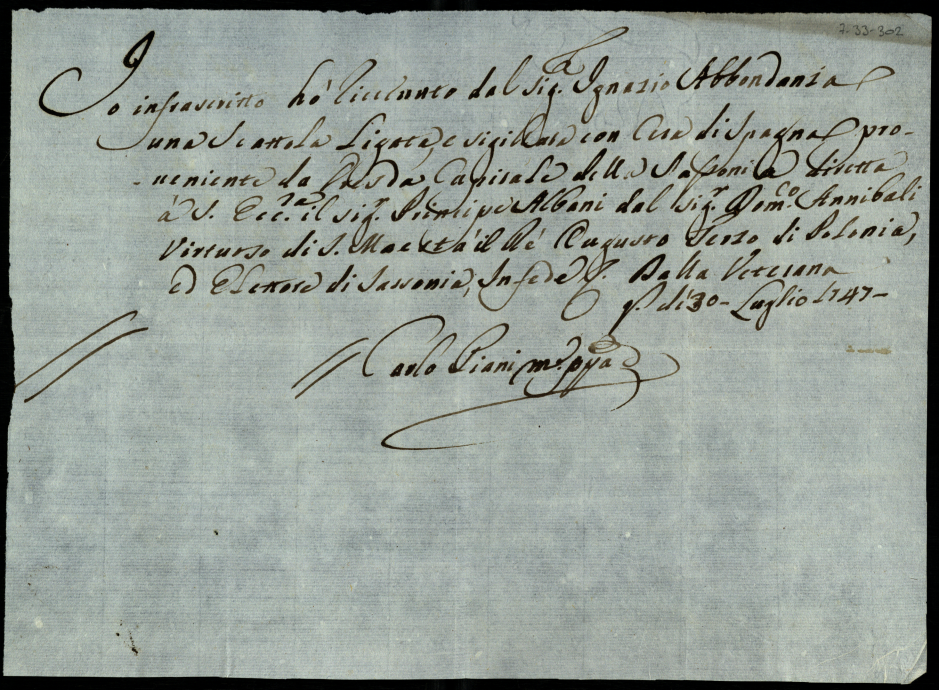 7-33-302
Io infrascritto hò riceuuto dal Sig.r Ignazio Abbondanza
una Scattola Ligata, e sigillata con Cera di Spagna pro-
-ueniente da Dresda Capitale della Sassonia diretta
à S. Ecc.za il sig.r Principe Albani dal Sig.r Dom.co Annibali
Virtuoso di S. Maestà il Rè Augusto Terzo di Polonia,
ed Elettore di Sassonia, In fede Dalla Veterana
q.to dì 30 - Luglio 1747 -
Carlo Piani m.o pp.a